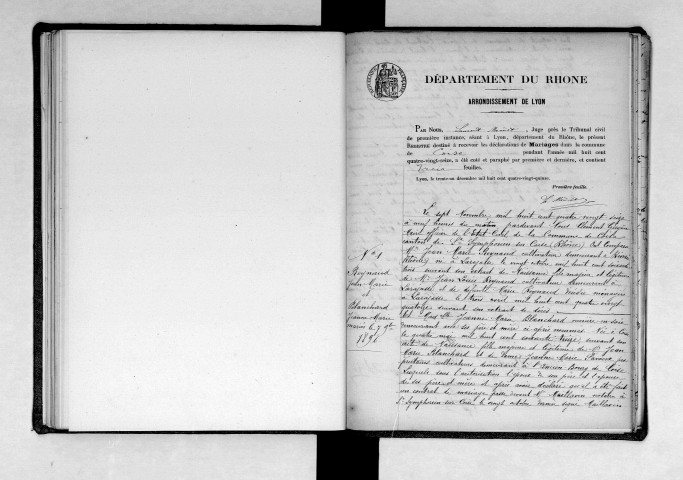 DÉPARTEMENT DU RHONE
ARRONDISSEMENT DE LYON
PAR NOUS, Juge près le Tribunal civil
de première instance, séant à Lyon, département du Rhône, le présent
REGISTRE destiné à recevoir les déclarations de Mariages dans la commune
de Coise pendant l'année mil huit cent
quatre-vingt-seize, a été coté et paraphé par première et dernière, et contient
feuilles.
Lyon, le trente-un décembre mil huit cent quatre-vingt-quinze.
Première feuille.
Le sept Novembre mil huit cent quatre vingt seize
à neuf heures du matin pardevant Nous Clément
officier de l'Etat Civil de la Commune de Coise
canton de St Symphorien sur Coise (Rhône) Est comparu
Mr Jean Marie Reynaud cultivateur demeurant à
(Rhône) né à Larajasse le vingt octobre mil huit cent soixante
suivant son extrait de Naissance fils majeur et légitime
de Mr Jean Louis Reynaud cultivateur demeurant à
Larajasse et de défunte Marie Reynaud
à Larajasse le trois avril mil huit cent quatre vingt
quatorze suivant son extrait de décès
Et Melle Jeanne Marie Blanchard
demeurant avec ses père et mère ci après nommés Née à Coise
le quatre mai mil huit cent soixante treize, suivant son
acte de Naissance fille majeure et légitime de Jean
Marie Blanchard et de Jeanne Marie
cultivateurs demeurant à Bourg de Coise
Laquelle sous l'autorisation
de ses père et mère et après avoir déclaré qu'il a été fait
un contrat de mariage passé devant Me notaire à
St Symphorien sur Coise le vingt octobre
No 1
Reynaud
Jean Marie
et
Blanchard
Jeanne Marie
mariés le 7 9bre
1896